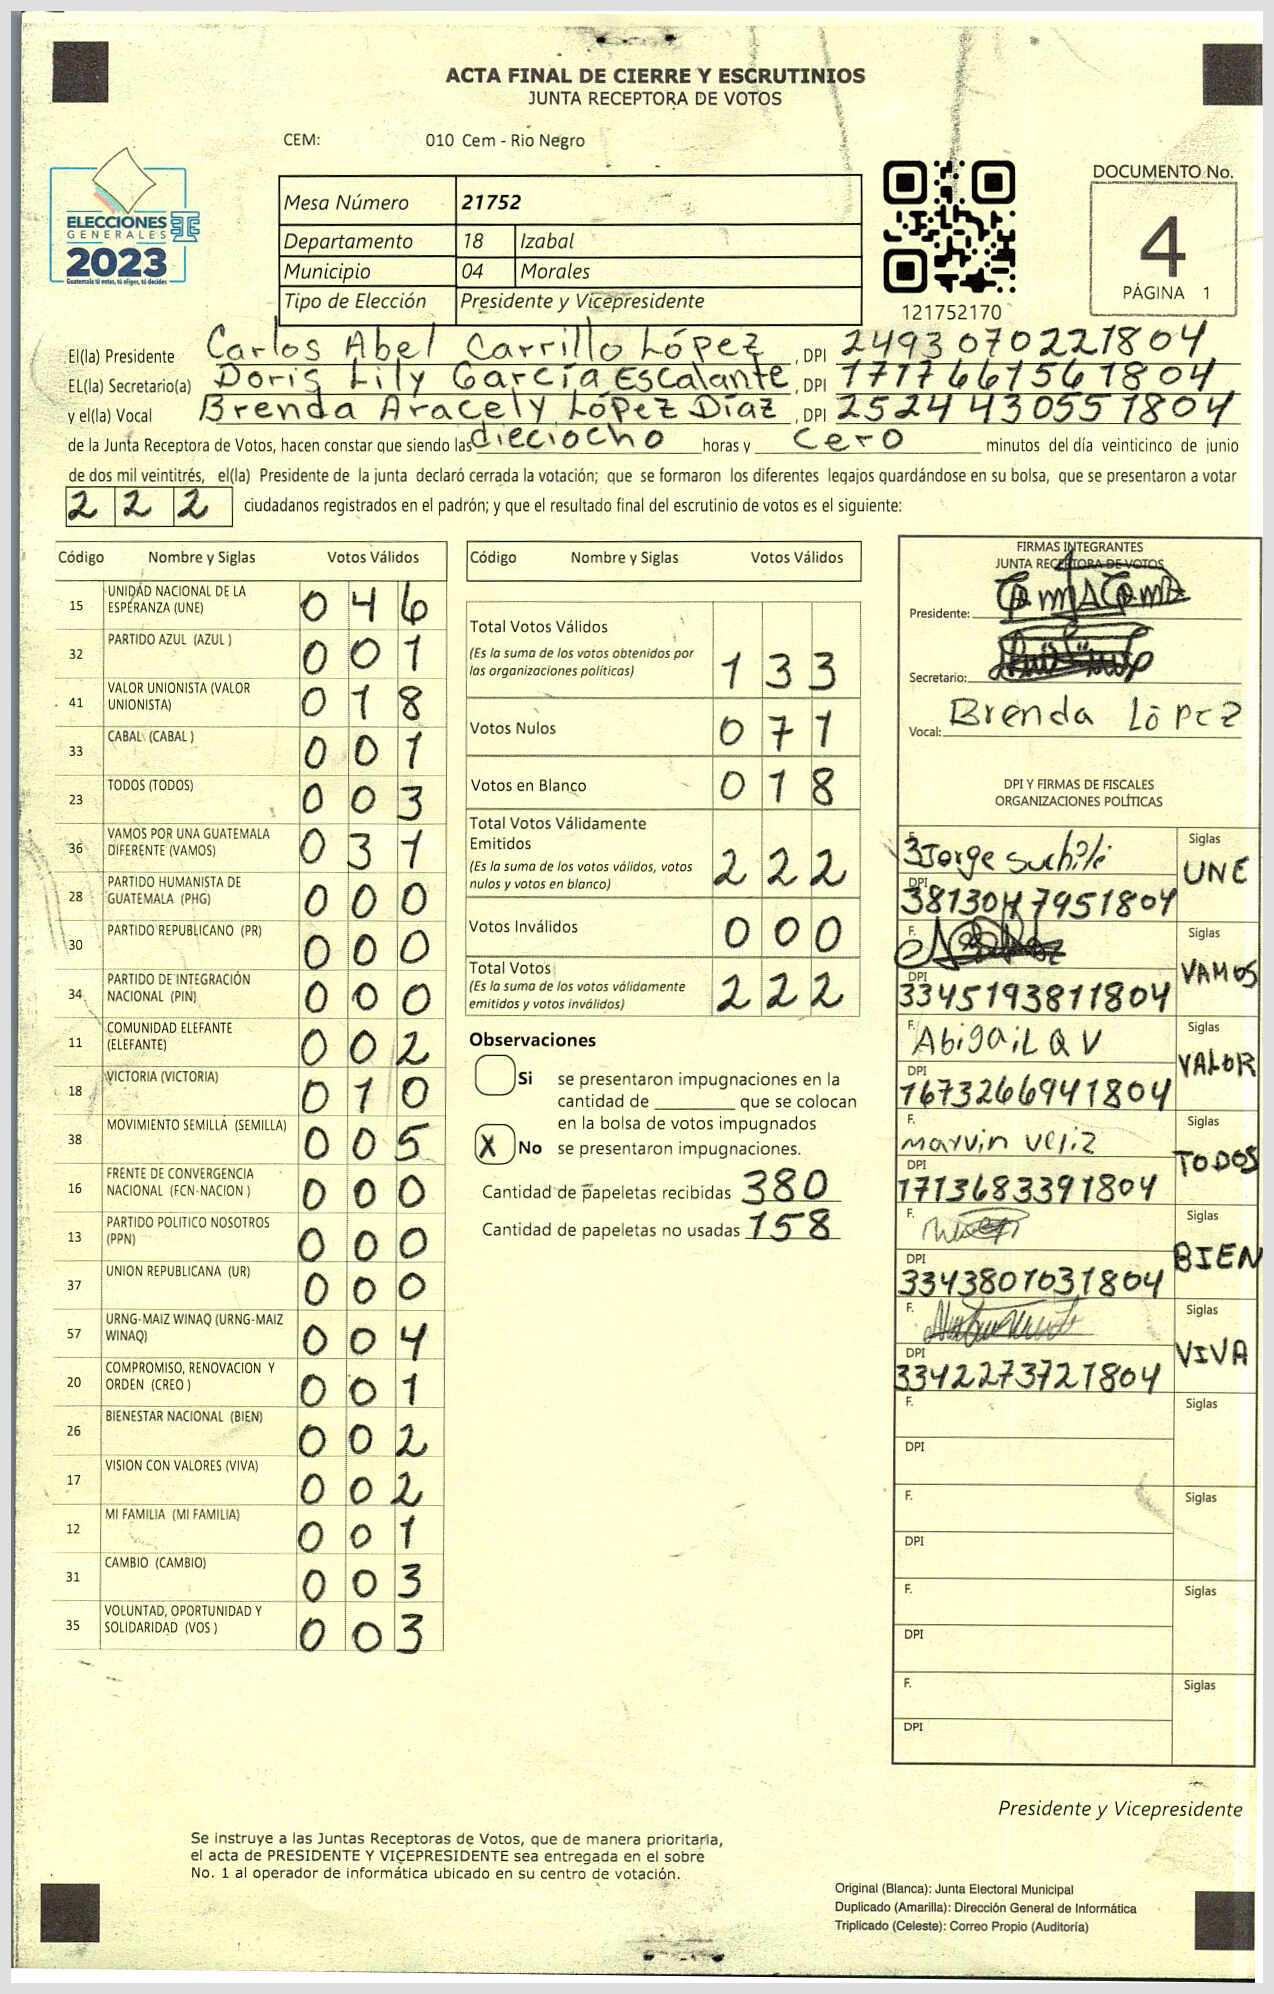 ACTA FINAL DE CIERRE Y ESCRUTINIOS
JUNTA RECEPTORA DE VOTOS
CEM: 010 Cem - Rio Negro
ELECCIONES
GENERALES
2023
Guatemala tú votas, tú eliges, tú decides
Mesa Número 21752
Departamento 18 Izabal
Municipio 04 Morales
Tipo de Elección Presidente y Vicepresidente
121752170
DOCUMENTO No.
4
PÁGINA 1
El(la) Presidente Carlos Abel Carrillo López, DPI 2493070221804
EL(la) Secretario(a) Doris Lily García Escalante, DPI 1717661561804
y el(la) Vocal Brenda Aracely López Díaz, DPI 2524430551804
de la Junta Receptora de Votos, hacen constar que siendo las dieciocho horas y cero minutos del día veinticinco de junio
de dos mil veintitrés, el(la) Presidente de la junta declaró cerrada la votación; que se formaron los diferentes legajos quardándose en su bolsa, que se presentaron a votar
222 ciudadanos registrados en el padrón; y que el resultado final del escrutinio de votos es el siguiente:
Código Nombre y Siglas Votos Válidos
15 UNIDAD NACIONAL DE LA ESPERANZA (UNE) 046
32 PARTIDO AZUL (AZUL ) 001
41 VALOR UNIONISTA (VALOR UNIONISTA) 018
33 CABAL (CABAL ) 001
23 TODOS (TODOS) 003
36 VAMOS POR UNA GUATEMALA DIFERENTE (VAMOS) 031
28 PARTIDO HUMANISTA DE GUATEMALA (PHG) 000
30 PARTIDO REPUBLICANO (PR) 000
34 PARTIDO DE INTEGRACIÓN NACIONAL (PIN) 000
11 COMUNIDAD ELEFANTE (ELEFANTE) 002
18 VICTORIA (VICTORIA) 010
38 MOVIMIENTO SEMILLA (SEMILLA) 005
16 FRENTE DE CONVERGENCIA NACIONAL (FCN-NACION ) 000
13 PARTIDO POLITICO NOSOTROS (PPN) 000
37 UNION REPUBLICANA (UR) 000
57 URNG-MAIZ WINAQ (URNG-MAIZ WINAQ) 004
20 COMPROMISO, RENOVACION Y ORDEN (CREO ) 001
26 BIENESTAR NACIONAL (BIEN) 002
17 VISION CON VALORES (VIVA) 002
12 MI FAMILIA (MI FAMILIA) 001
31 CAMBIO (CAMBIO) 003
35 VOLUNTAD, OPORTUNIDAD Y SOLIDARIDAD (VOS ) 003
Código Nombre y Siglas Votos Válidos
Total Votos Válidos
(Es la suma de los votos obtenidos por
las organizaciones políticas) 133
Votos Nulos 071
Votos en Blanco 018
Total Votos Válidamente
Emitidos
(Es la suma de los votos válidos, votos
nulos y votos en blanco) 222
Votos Inválidos 000
Total Votos
(Es la suma de los votos válidamente
emitidos y votos inválidos) 222
Observaciones
Si se presentaron impugnaciones en la
cantidad de ________ que se colocan
en la bolsa de votos impugnados
X No se presentaron impugnaciones.
Cantidad de papeletas recibidas 380
Cantidad de papeletas no usadas 158
FIRMAS INTEGRANTES
JUNTA RECEPTORA DE VOTOS
Presidente:
Secretario:
Vocal: Brenda López
DPI Y FIRMAS DE FISCALES
ORGANIZACIONES POLÍTICAS
F. Jorge Suchité Siglas UNE
DPI 3813047951804
F. Siglas VAMOS
DPI 3345193811804
F. Abigail Q V Siglas VALOR
DPI 1673266941804
F. Marvin Veliz Siglas TODOS
DPI 1713683391804
F. Siglas BIEN
DPI 3343801031804
F. Siglas VIVA
DPI 3342273721804
F. Siglas
DPI
F. Siglas
DPI
F. Siglas
DPI
F. Siglas
DPI
Presidente y Vicepresidente
Se instruye a las Juntas Receptoras de Votos, que de manera prioritaria,
el acta de PRESIDENTE Y VICEPRESIDENTE sea entregada en el sobre
No. 1 al operador de informática ubicado en su centro de votación.
Original (Blanca): Junta Electoral Municipal
Duplicado (Amarilla): Dirección General de Informática
Triplicado (Celeste): Correo Propio (Auditoría)